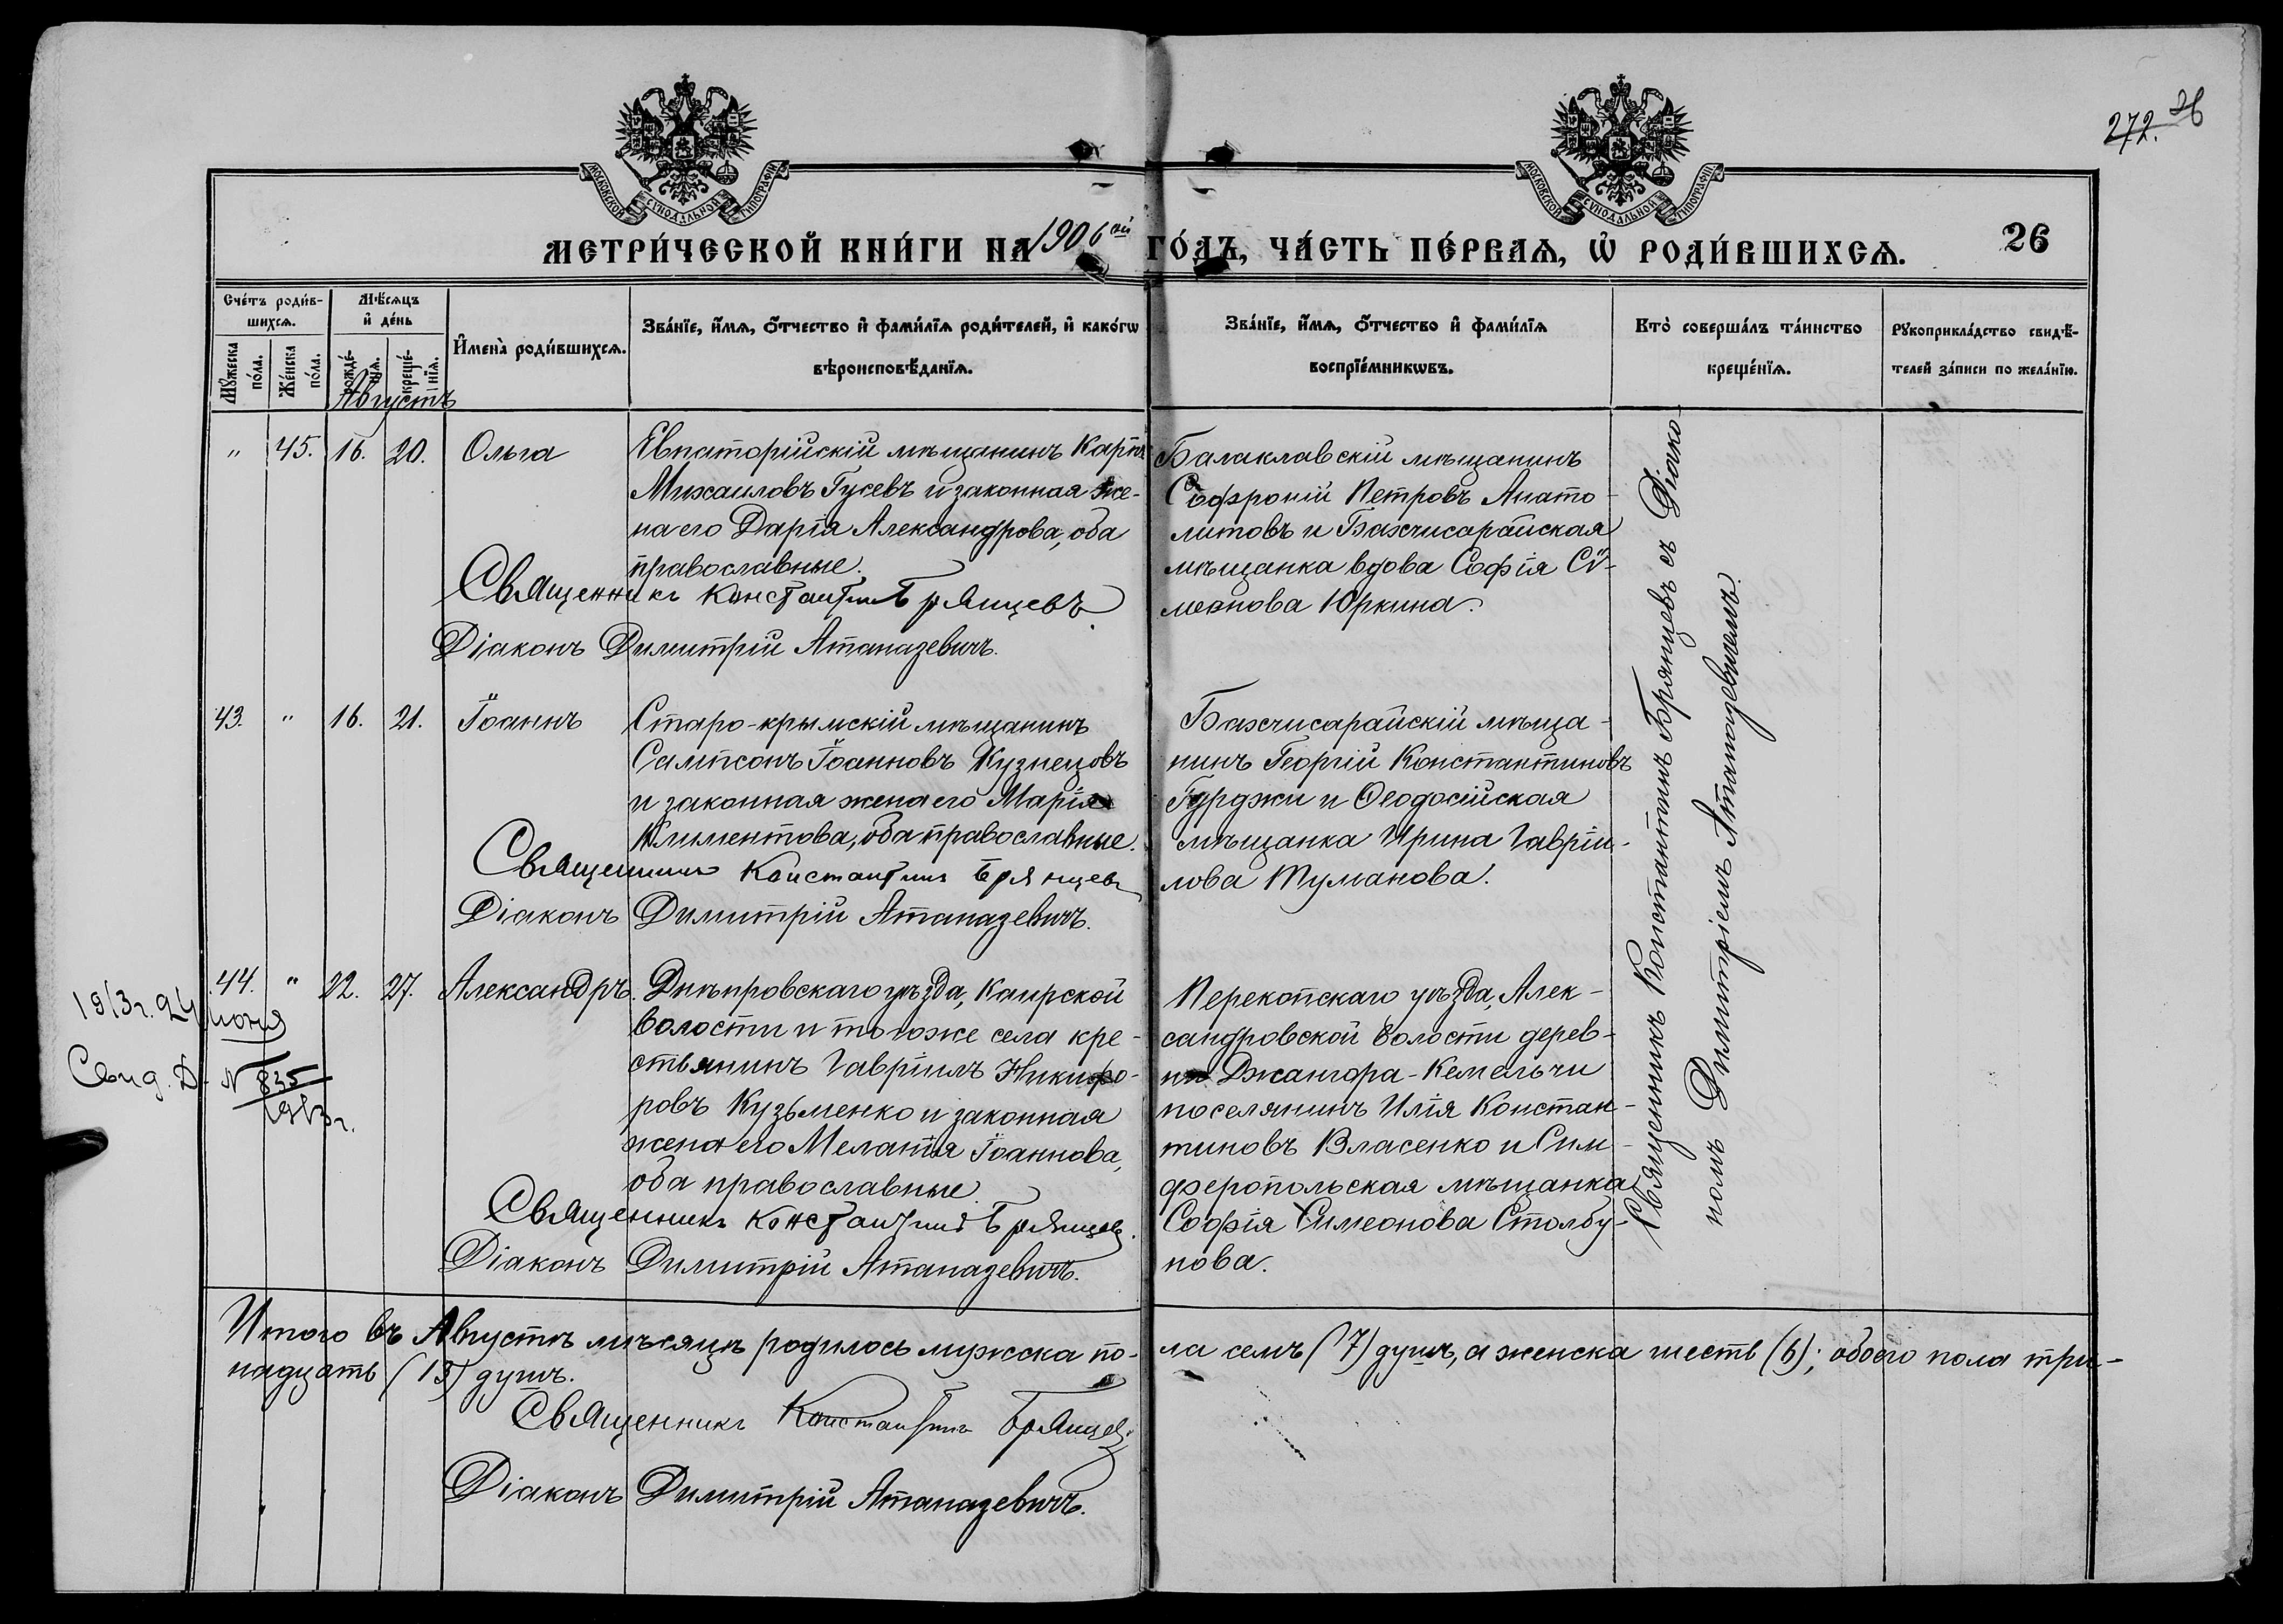 272. 26
МОСКОВСКОЙ СУНОДАЛЬНОЙ ТИПОГРАФІИ
МОСКОВСКОЙ СУНОДАЛЬНОЙ ТИПОГРАФІИ
МЕТРИ́ЧЕСКОЙ КНИ́ГИ НА 1906 ый ГО́ДЪ, ЧА́СТЬ ПЕ́РВАѦ, Ѽ РОДИ́ВШИХСѦ. 26
Сче́тъ роди́в-
шихсѧ.
Мꙋ́жеска по́ла.
Же́нска по́ла.
Мѣ́сѧцъ
и҆ де́нь
рожде́-
нїѧ.
креще́-
нїѧ.
И҆мена̀ роди́вшихсѧ.
Зва́нїе, и҆́мѧ, ѻ҆́тчество и҆ фами́лїѧ роди́телей, и҆ како́гѡ
вѣроисповѣ́данїѧ.
Зва́нїе, и҆́мѧ, ѻ҆́тчество и҆ фами́лїѧ
воспрїе́мникѡвъ.
Кто̀ соверша́лъ та́инство
креще́нїѧ.
Рꙋкоприкла́дство свидѣ́-
телей за́писи по жела́нїю.
Августъ
" 45. 16. 20. Ольга
Евпаторійскій мѣщанинъ Карпъ
Михаиловъ Гусевъ и законная же-
на его Дарія Александрова, оба
православные.
Священникъ Константинъ Брянцевъ
Діаконъ Димитрій Атаназевичъ.
Балаклавскій мѣщанинъ
Софроній Петровъ Анато-
литовъ и Бахчисарайская
мѣщанка вдова Софія Сѵ-
меонова Юркина.
43. " 16. 21. Іоаннъ
Старо-крымскій мѣщанинъ
Сампсонъ Іоанновъ Кузнецовъ
и законная жена его Марія
Климентова, оба православные.
Священникъ Константинъ Брянцевъ
Діаконъ Димитрій Атаназевичъ.
Бахчисарайскій мѣща-
нинъ Георгій Константиновъ
Гурджи и Ѳеодосійская
мѣщанка Ирина Гавріи-
лова Туманова.
44. " 22. 27. Александръ.
1913 г. 24
июня
Свид. Д. N 835
1913 г.
Днѣпровскаго уѣзда, Каирской
волости и того же села кре-
стьянинъ Гавріилъ Никифо-
ровъ Кузьменко и законная
жена его Меланія Іоаннова,
оба православные.
Священникъ Константинъ Брянцевъ.
Діаконъ Димитрій Атаназевичъ.
Перекопскаго уѣзда, Алек-
сандровской волости дерев-
ни Джангора-Кемельчи
поселянинъ Илія Констан-
тиновъ Власенко и Сим-
феропольская мѣщанка
Софія Симеонова Столбу-
нова.
Священникъ Константинъ Брянцевъ съ Діако-
номъ Димитріемъ Атаназевичемъ.
Итого въ Августѣ мѣсяцѣ родилось мужска по-ла семъ (7) душъ, а женска шесть (6); обоего пола три-
надцать (13) душъ.
Священникъ Константинъ Брянцевъ
Діаконъ Димитрій Атаназевичъ.